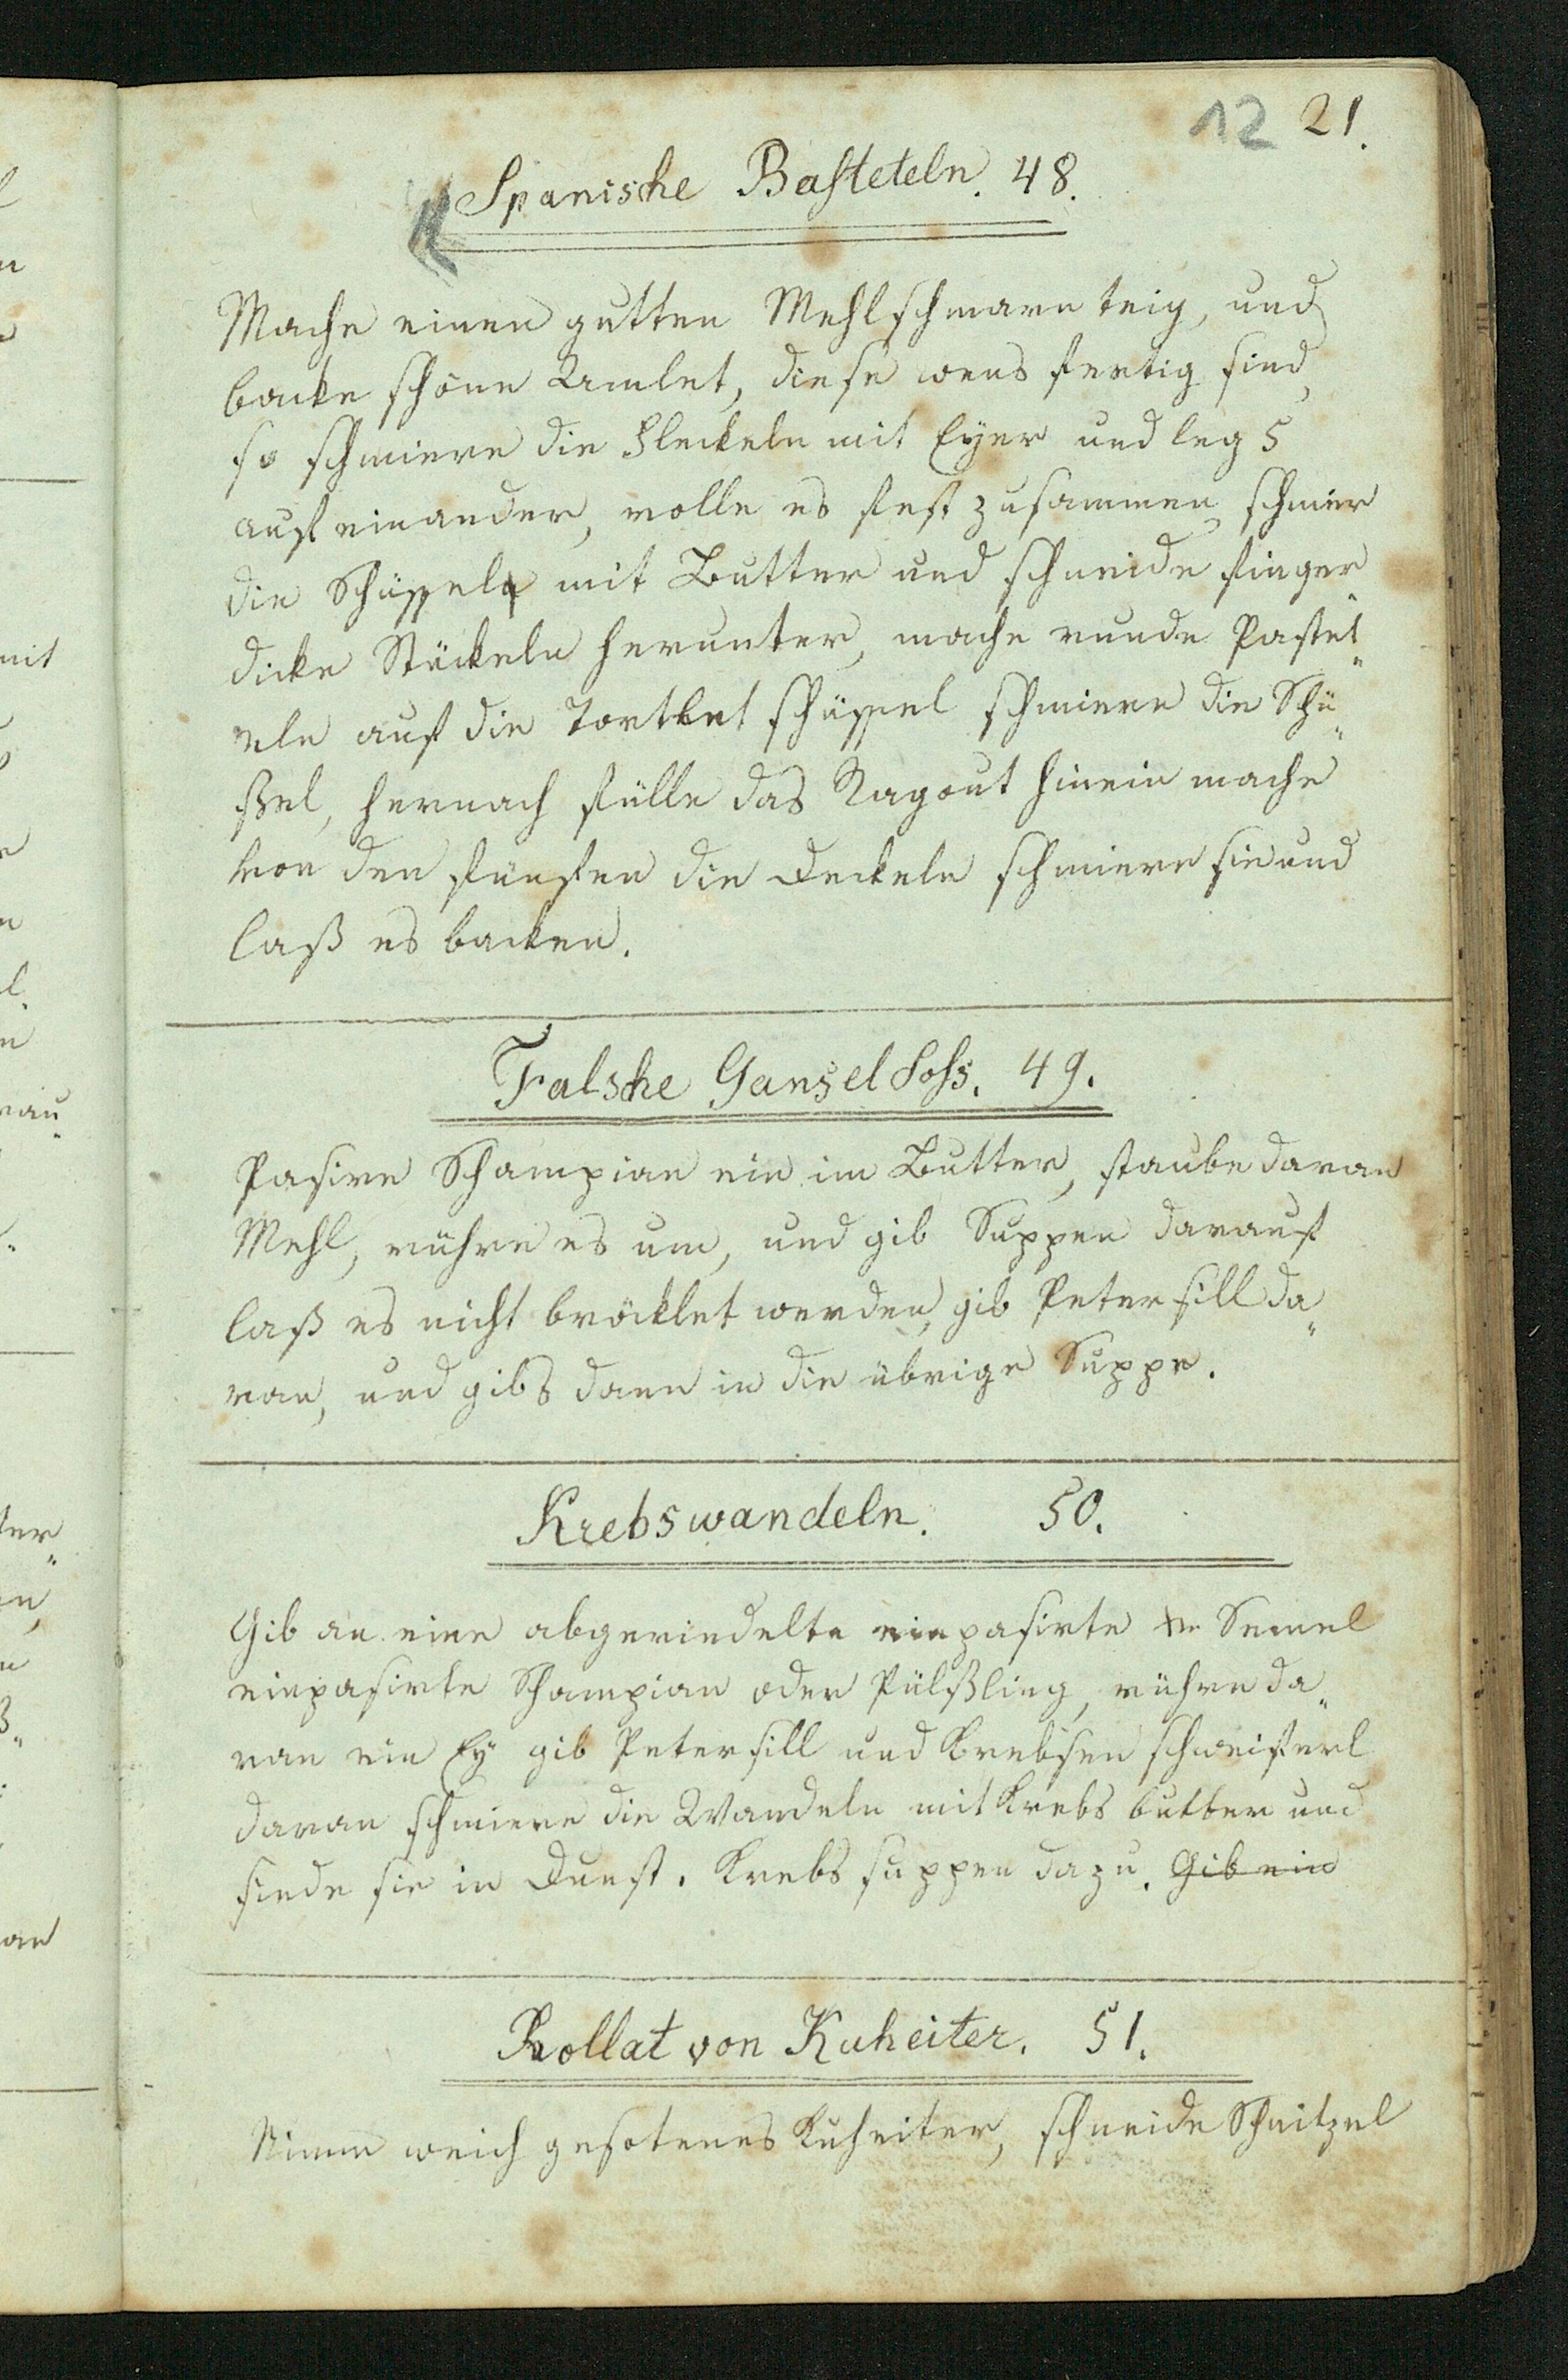 12 21.
Spanische Basteteln. 48.
Mache einen gutten Mehlschmarn teig, und
backe schöne Umlet, diese wens fertig sind,
so schmiere die Fleckeln mit Eyer und leg 5
auf einander, rolle es fest zusammen schmier
die Schüssel mit Butter und schneide finger
dicke Stückeln herunter, mache runde Pastet„
eln auf die Tortlet schüssel schmiere die Schü„
ßel, hernach fülle das Ragout hinein mache
von den fünften die Deckeln schmiere sie und
laß es backen.
Falsche Gansel Soß. 49.
Pasire Schampian ein im Butter, staube daran
Mehl, rühre es um, und gib Suppen darauf
laß es nicht bröcklet werden, gib Petersill da„
ran, und gibs dann in die übrige Suppe.
Krebswandeln. 50.
Gib an eine abgerindelte einpasirte Semel
einpasirte Schampian oder Pülßling, rühre da„
ran ein Ey gib Petersill und Krebsen schweiferl
daran schmiere die Wandeln mit Krebs butter und
siede sie in Dunst. Krebs suppen dazu. Gib ein
Rollat von Kuheiter. 51.
Nimm weich gesotenes Kuheiter, schneide Schnitzel